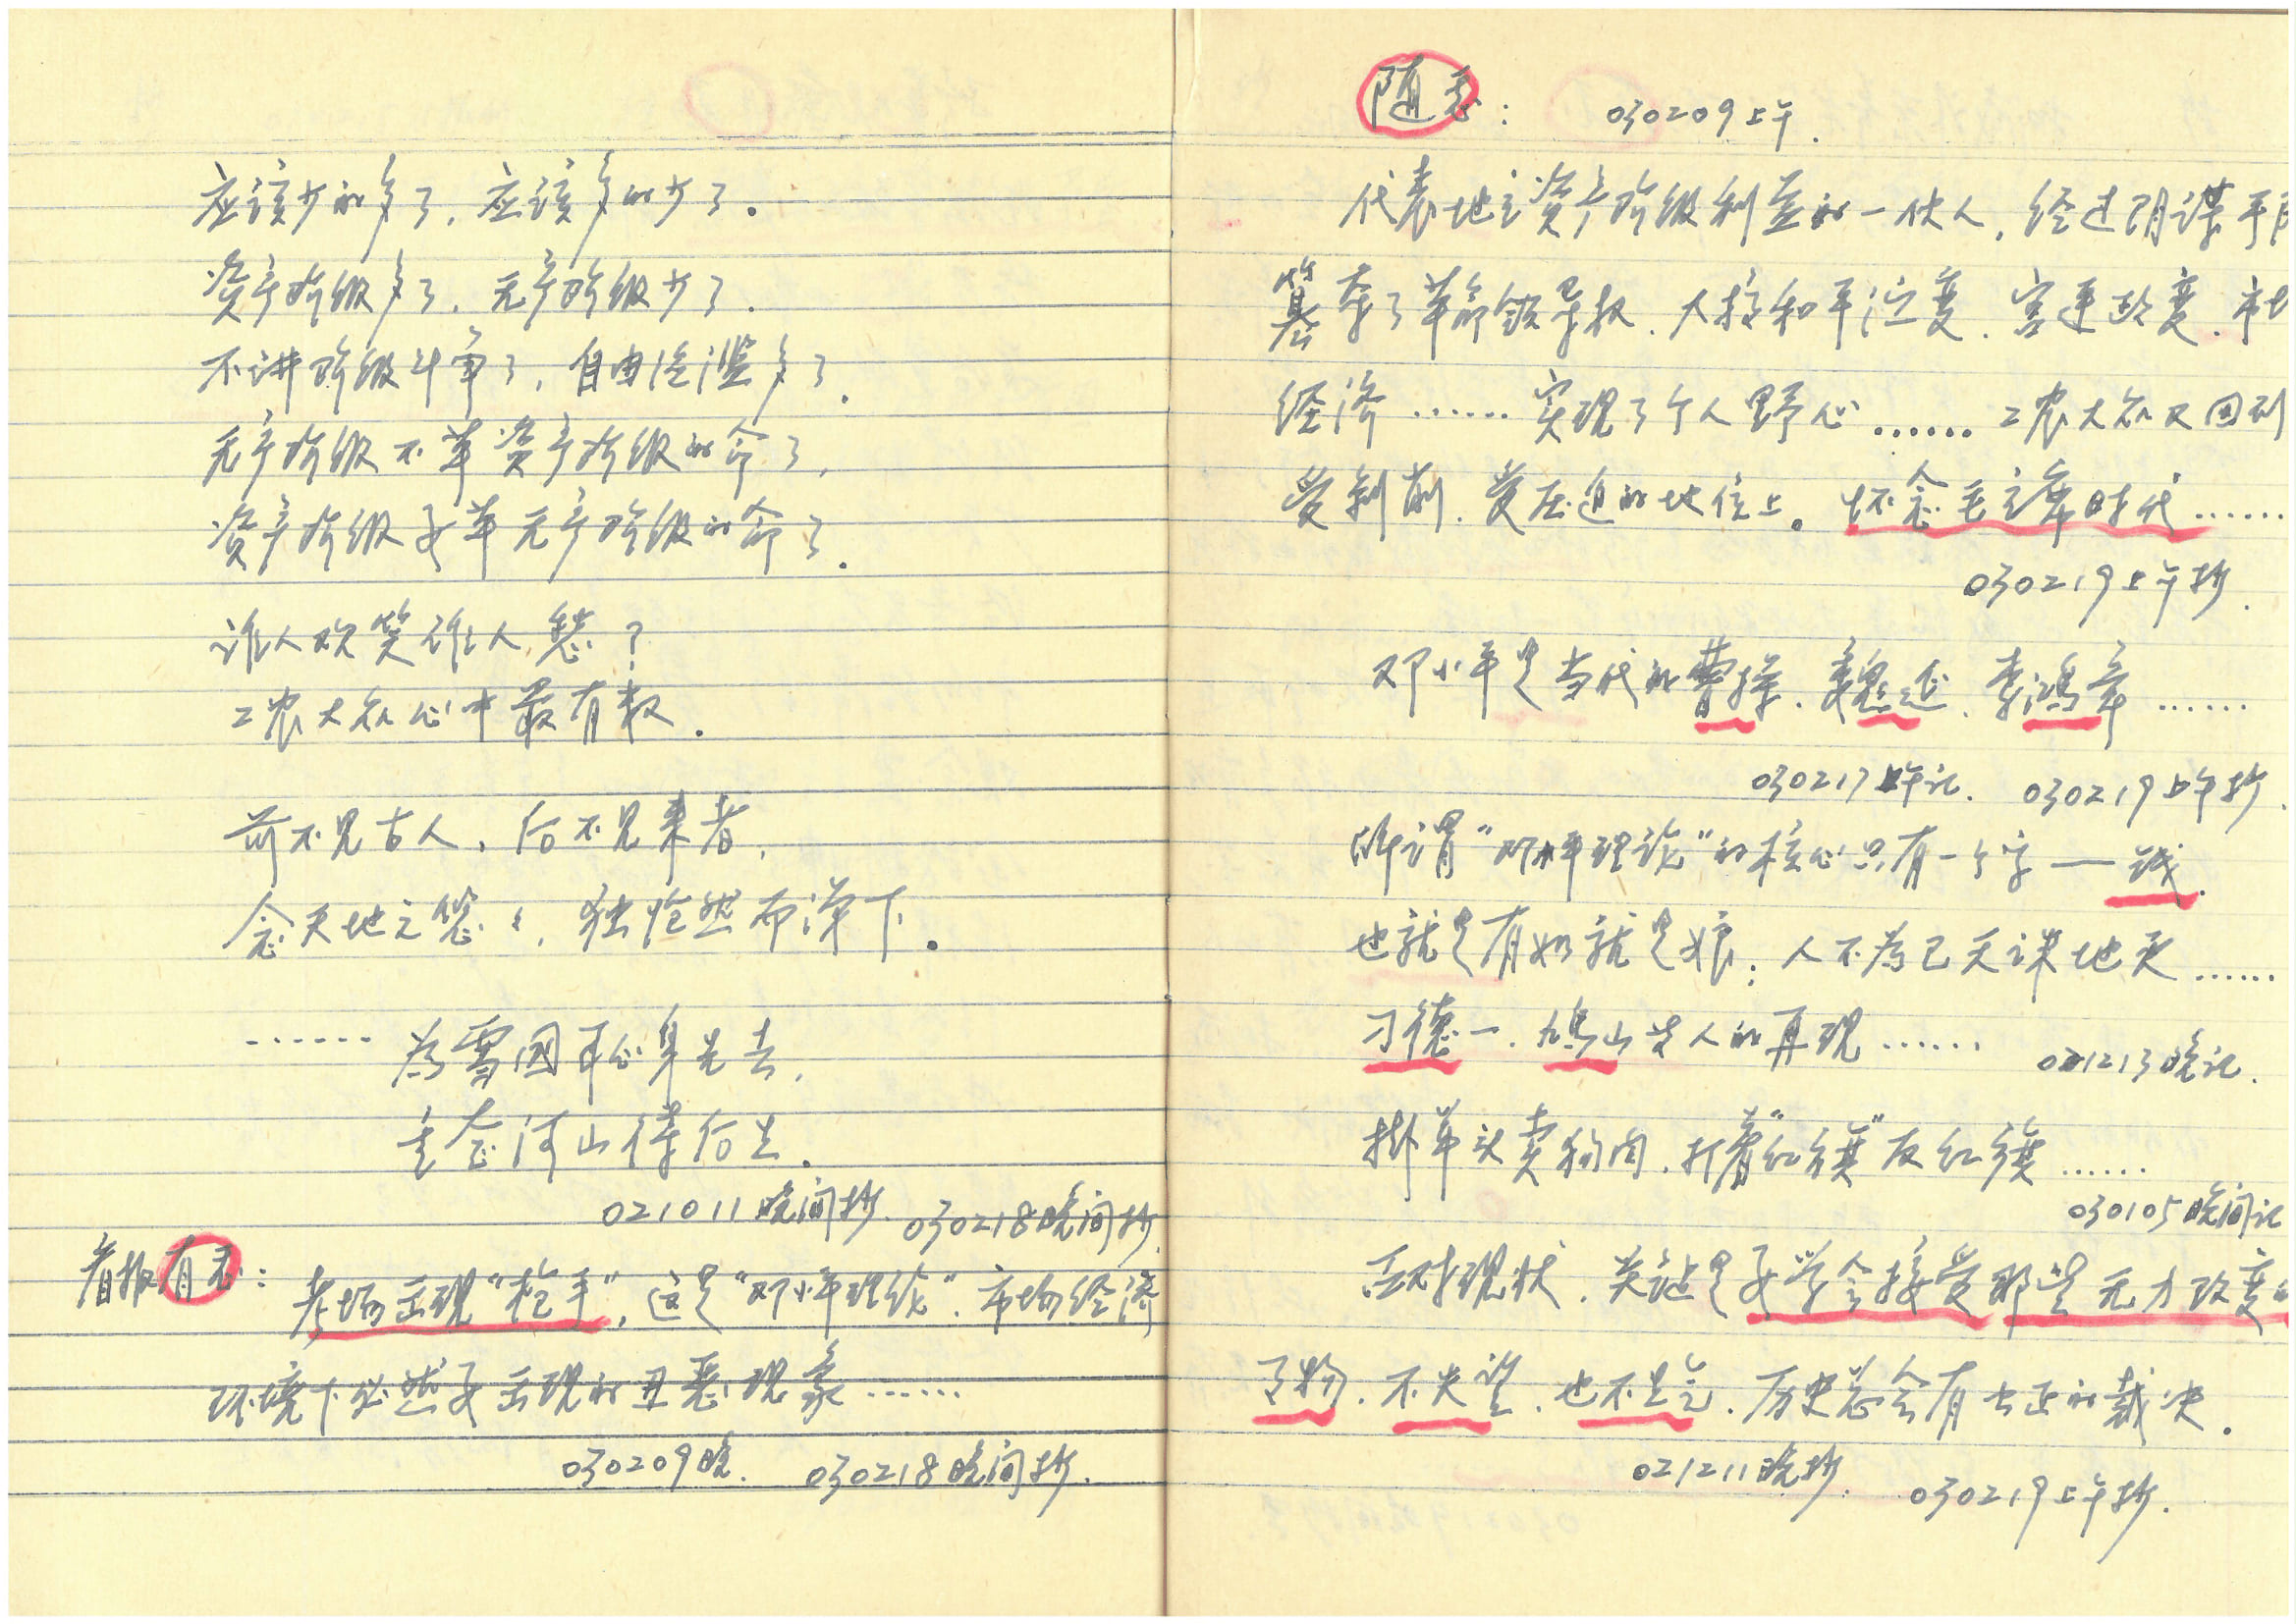 应该少的多了，应该多的少了。
资产阶级多了，无产阶级少了。
不讲阶级斗争了，自由泛滥多了。
无产阶级不革资产阶级的命了，
资产阶级要革无产阶级的命了。
谁人欢笑谁人愁？
工农大众心中最有数。
前不见古人，后不见来者，
念天地之悠々，独怆然而涕下。
……为雪国耻心身先去，
重合河山待后生。
021011晚间抄. 030218晚间抄.
看报有感：考场出现“枪手”，这是“邓小平理论”、市场经济
环境下必然要出现的丑恶现象……
030209晚. 030218晚间抄.
随感： 030209上午.
代表地主资产阶级利益的一伙人，经过阴谋手
篡夺了革命领导权、大搞和平演变、宫廷政变、市
经济……实现了个人野心……工农大众又回到
受剥削、受压迫的地位上。怀念毛主席时代……
030219上午抄.
邓小平是当代的曹操、魏延、李鸿章……
030217上午记. 030219上午抄.
所谓“邓小平理论”的核心只有一个字——钱.
也就是有奶就是娘；人不为己天诛地灭……
刁德一、鸠山等人的再现……
021213晚记.
挂羊头卖狗肉、打着“红旗”反红旗……
030105晚间记
面对现状，关键是要学会接受那些无力改变
事物、不失望、也不生气、历史总会有公正的裁决。
021211晚抄. 030219上午抄.